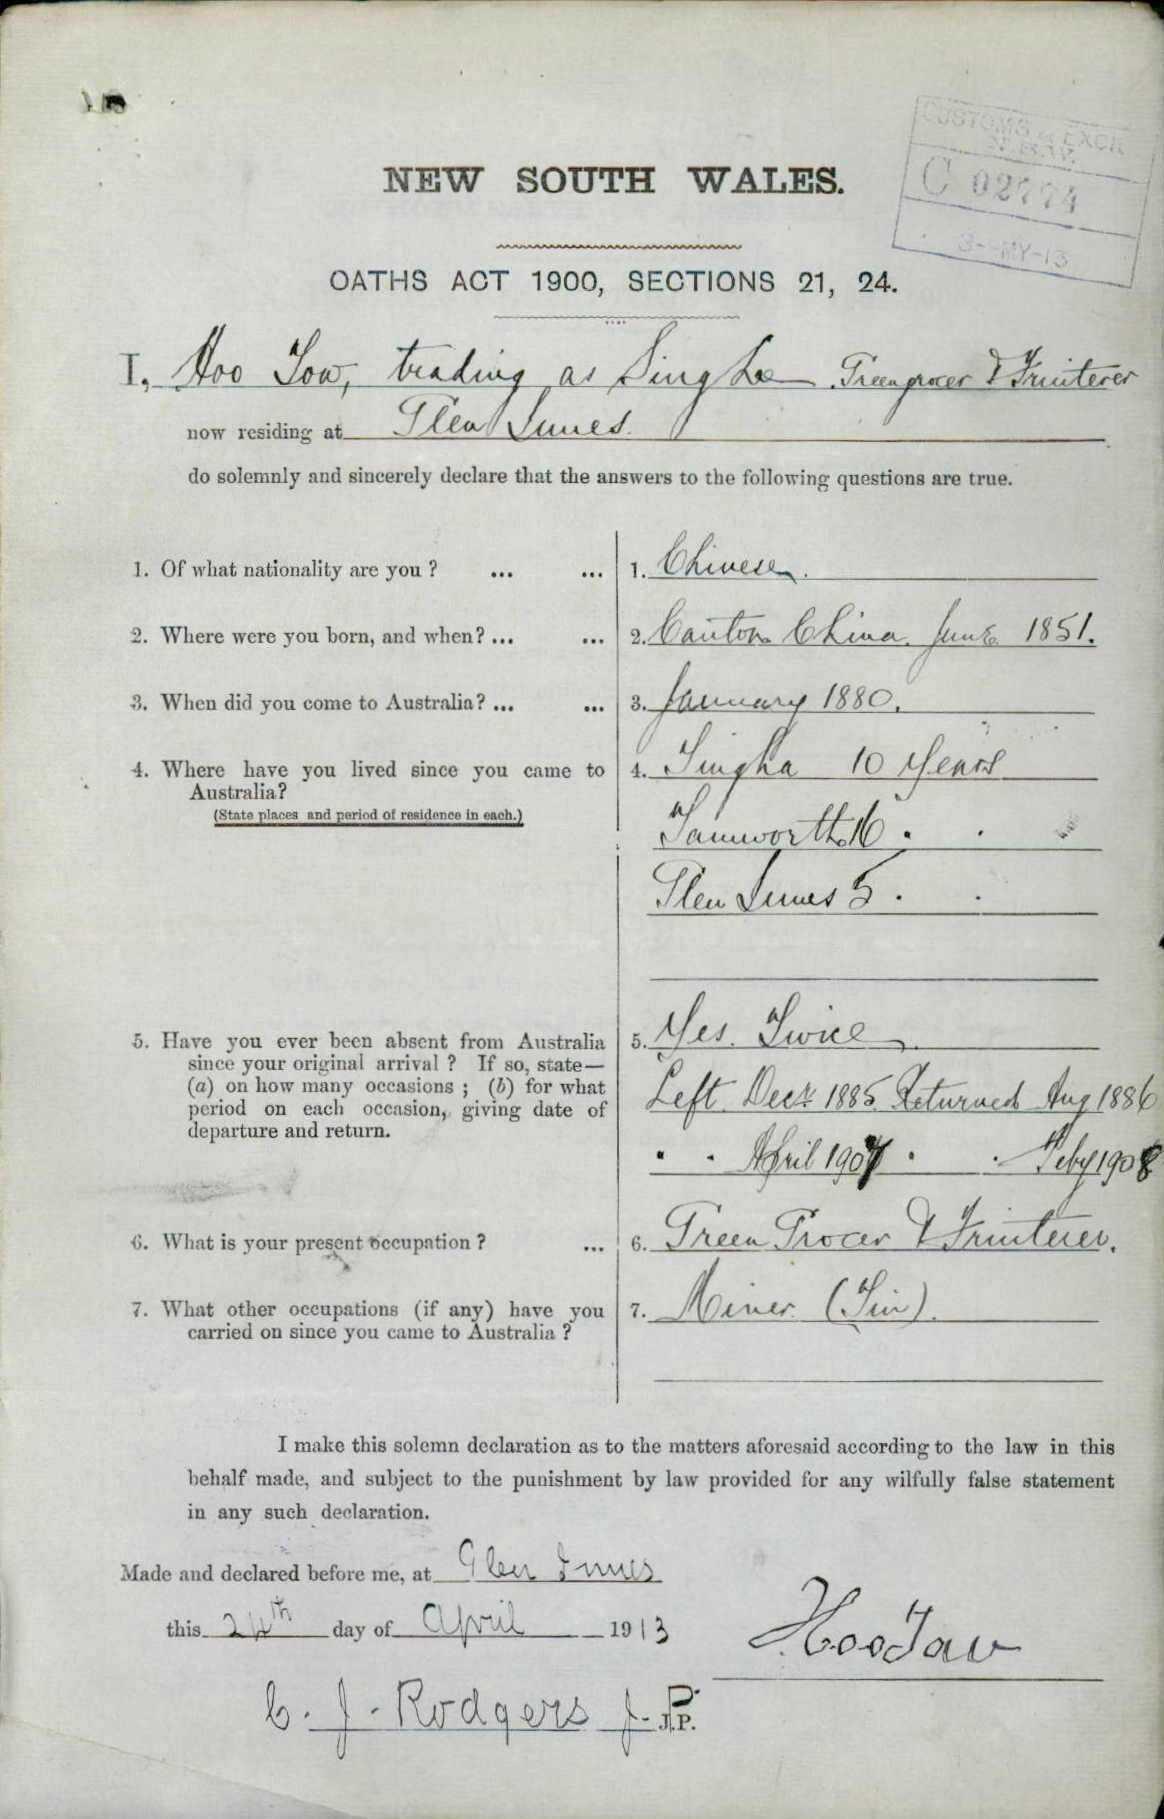 CUSTOMS & EXCIS
N.S.W.
C 02774
3-MY-13
NEW SOUTH WALES.
OATHS ACT 1900, SECTIONS 21, 24.
I, Hoo Tow, trading as Sing Lee Greengrocer & Fruiterer
now residing at Glen Innes.
do solemnly and sincerely declare that the answers to the following questions are true.
1. Of what nationality are you ? ... ... 1. Chinese.
2. Where were you born, and when? ... ... 2. Canton China. June 1851.
3. When did you come to Australia? ... ... 3. January 1880.
4. Where have you lived since you came to 4. Tingha 10 Years
Australia?
(State places and period of residence in each.)
Tamworth 16 " "
Glen Innes 5 " "
5. Have you ever been absent from Australia 5. Yes. Twice.
since your original arrival ? If so, state—
(a) on how many occasions ; (b) for what Left Decr. 1885 Returned Aug 1886
period on each occasion, giving date of
departure and return.
" " April 1907 " " Feby 1908
6. What is your present occupation ? ... 6. Green Grocer & Fruiterer.
7. What other occupations (if any) have you 7. Miner (Tin).
carried on since you came to Australia ?
I make this solemn declaration as to the matters aforesaid according to the law in this
behalf made, and subject to the punishment by law provided for any wilfully false statement
in any such declaration.
Made and declared before me, at Glen Innes
this 24th day of April 1913
Hoo Taw
C. J. Rodgers J. P.
J.P.